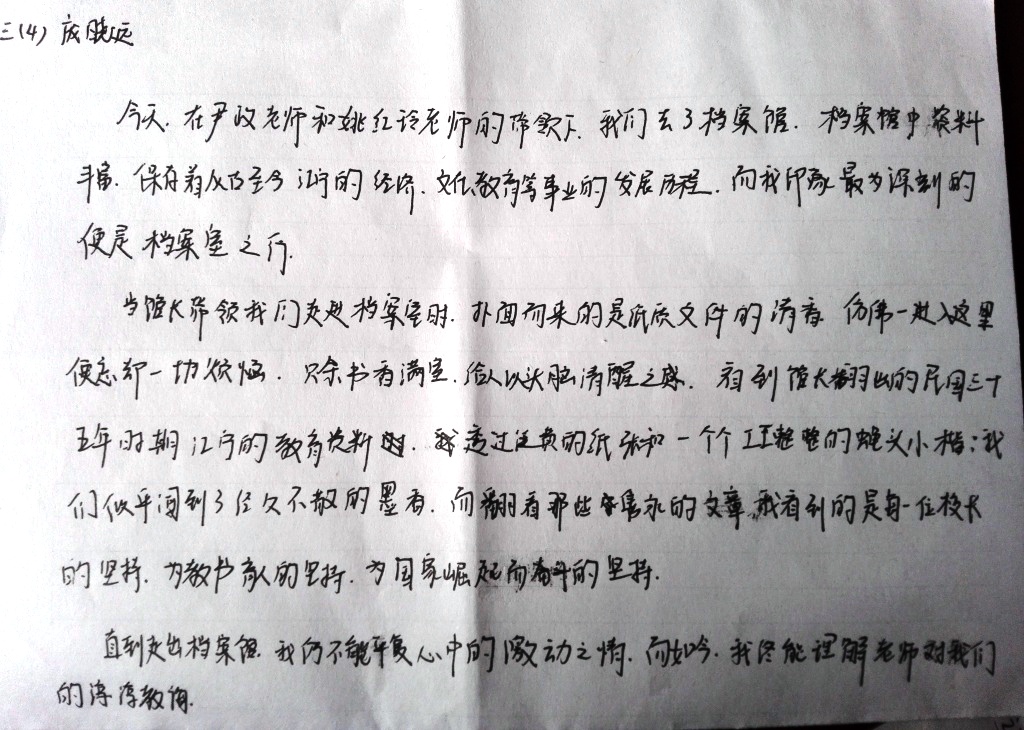 三(4) 成晓远
今天.在尹政老师和姚红玲老师的带领下.我们去了档案馆.档案馆中资料
丰富.保存着从古至今江宁的经济.文化教育等事业的发展历程.而我印象最为深刻的
便是档案室之行.
当馆长带领我们走进档案室时.扑面而来的是纸质文件的清香.仿佛一进入这里
便忘却一切烦恼.只余书香满室.给人以头脑清醒之感.看到馆长翻出的民国三十
五年时期江宁的教育资料时.我透过泛黄的纸张和一个个工工整整的蝇头小楷;我
们似乎闻到了经久不散的墨香.而翻看那些隽永的文章.我看到的是每一位校长
的坚持.为教书育人的坚持.为国家崛起而奋斗的坚持.
直到走出档案馆.我仍不能平复心中的激动之情.而如今.我终能理解老师对我们
的谆谆教诲.